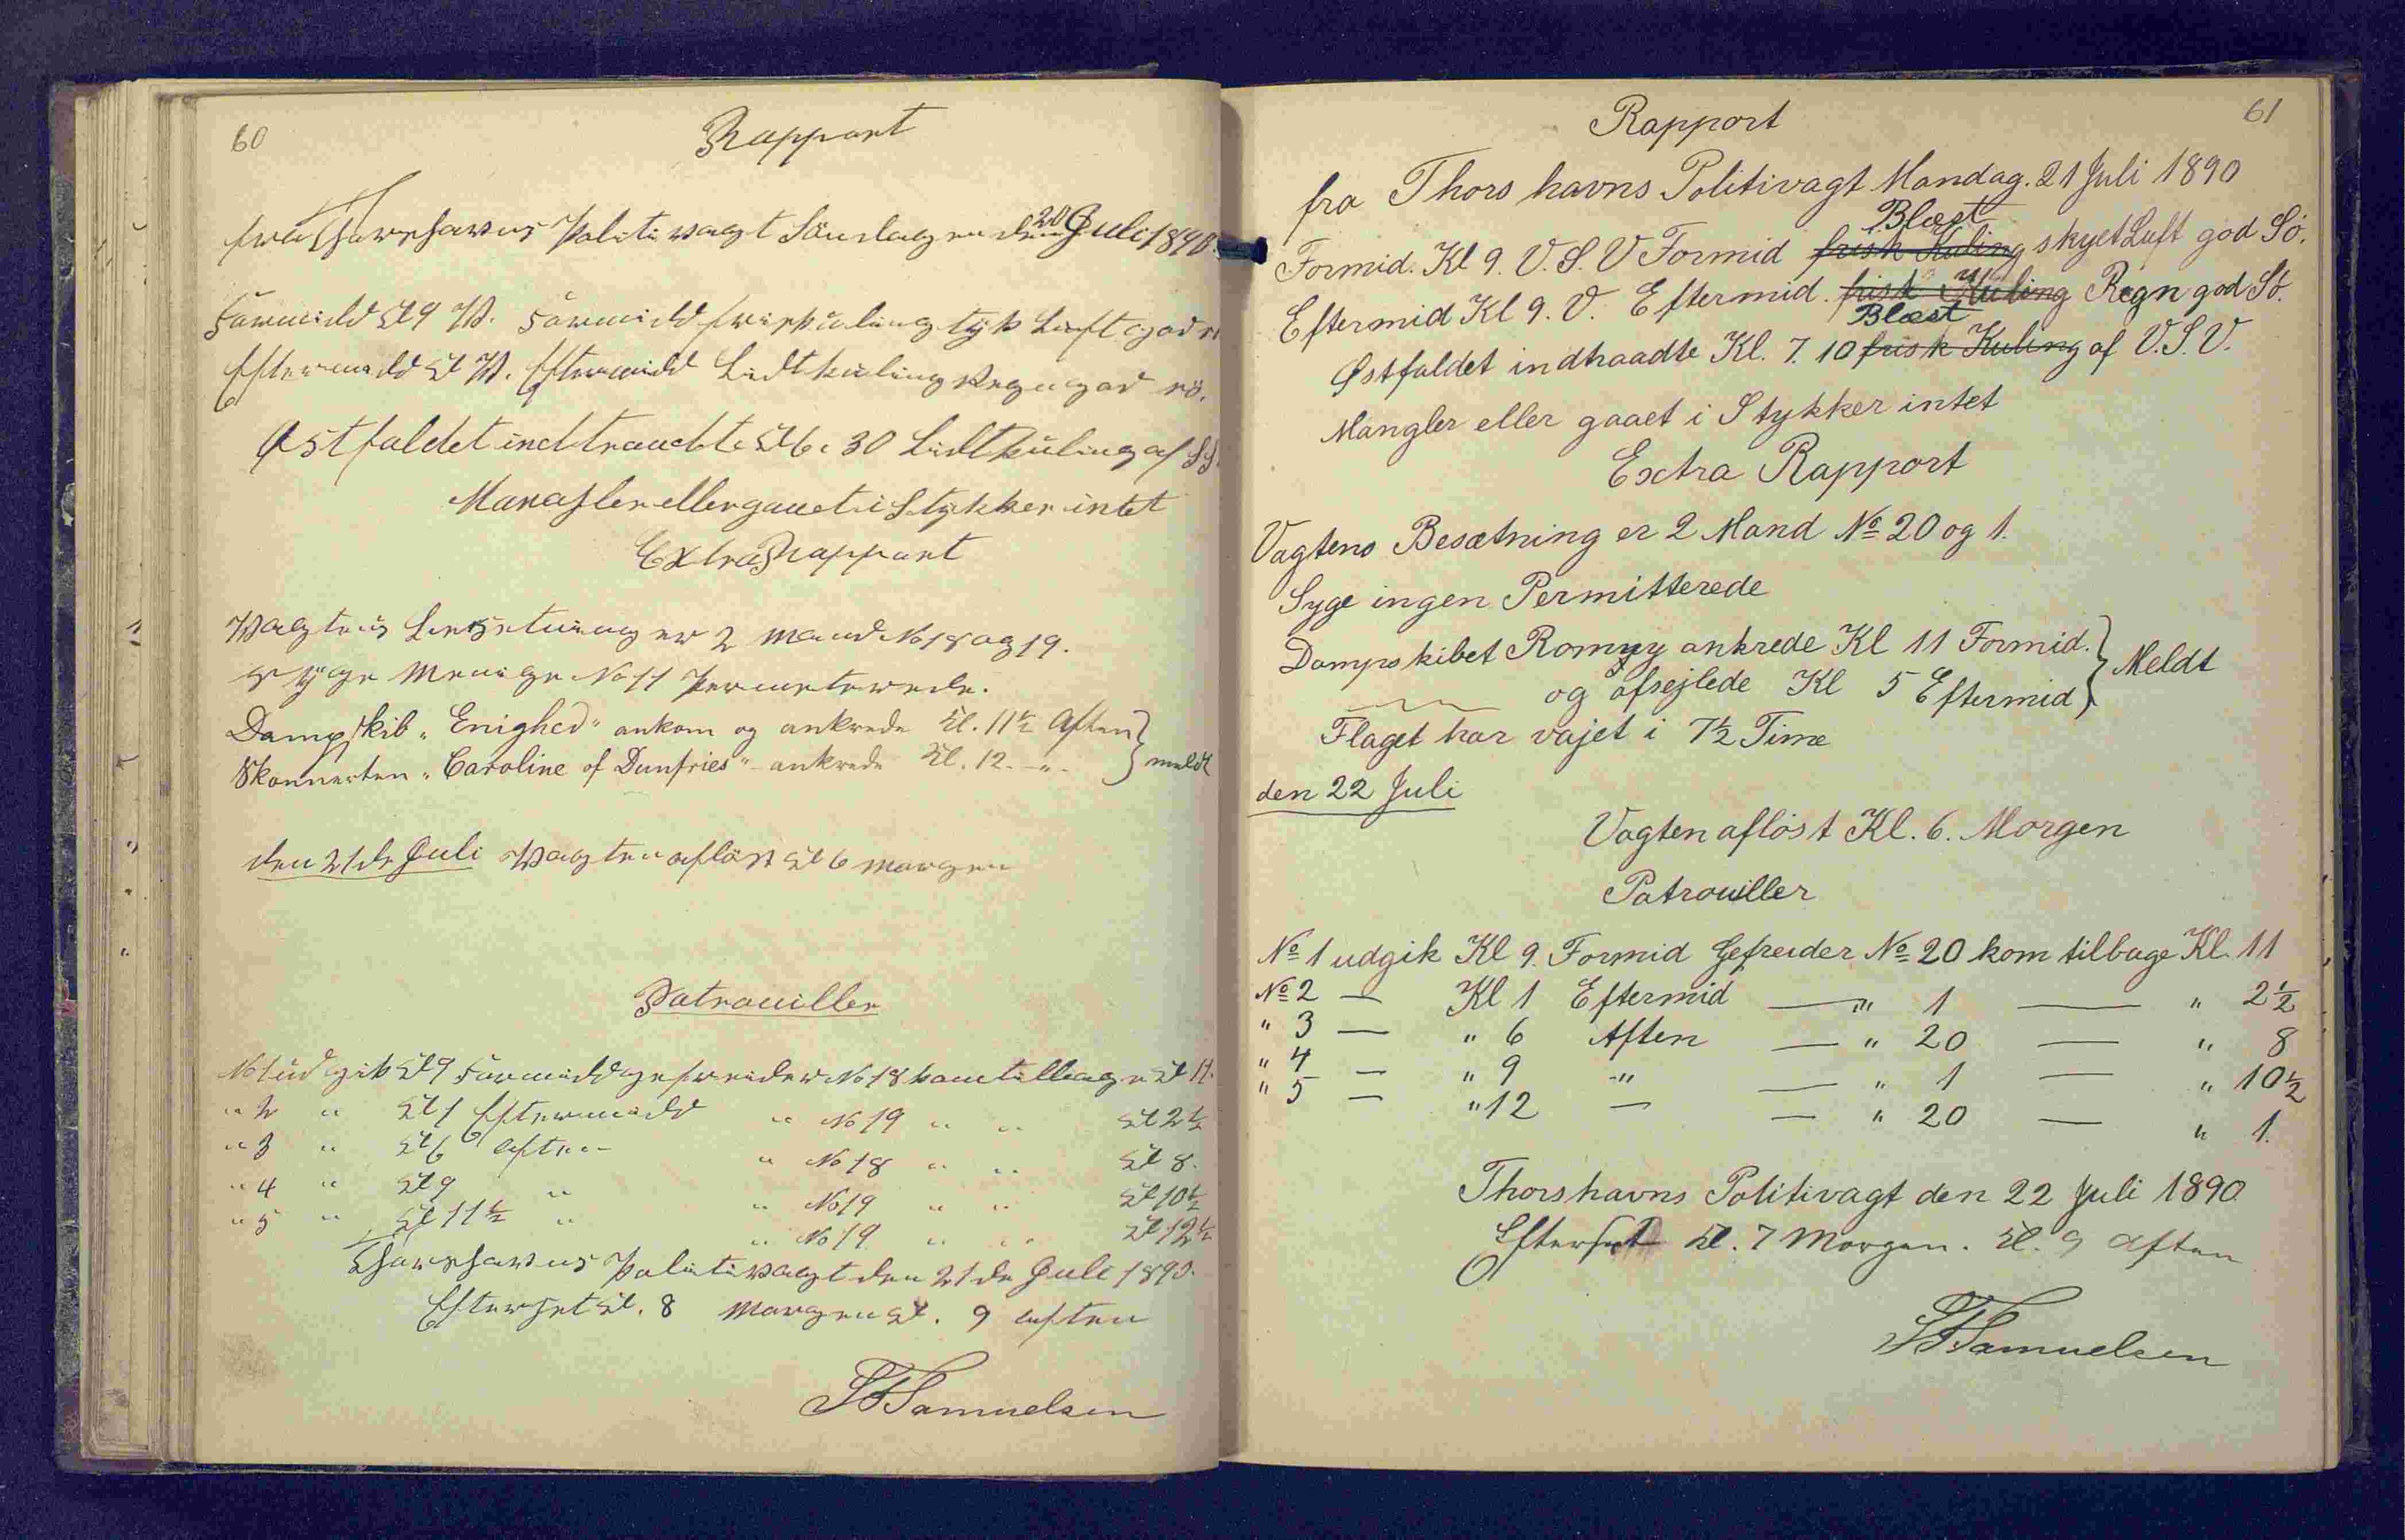 60
Rapport
fra Thorshavns Politivagt Söndagen den 20 Juli 1890.
Formidd Kl 9 V. Formidd frisk kuling tyk Luft god
Eftermidd Kl V. Eftermidd Lidt kuling Regn god sö.
Østfaldet indtraadte Kl 6.30 Lidt kuling af
Mangler eller gaaet i Stykker intet
Extra Rapport
Vagtens besetning er 2 Mand No 18 og 19.
Syge Menige No 11 Permeterede.
Dampskib „Enighed" ankom og ankrede Kl. 11½ Aften
Skonnerten „Caroline of Dumfries" ankrede Kl. 12 - „ - } meldt
den 21de Juli Vagten aflöst Kl 6 Morgen
Patrouiller
No 1 udgik Kl 9 Formidd gefreider No 18 kom tilbage Kl 11.
" 2 " Kl 1 Eftermidd " No 19 " " Kl 2½
" 3 " Kl 6 Aften " No 18 " " Kl 8.
" 4 " Kl 9 " " No 19 " " Kl 10½
" 5 " Kl 11½ " " No 19 " " Kl 12½
Thorshavns Politivagt den 21de Juli 1890.
Efterset Kl. 8 Morgen Kl. 9 aften
Samuelsen
61
Rapport
fra Thors havns Politivagt Mandag. 21 Juli 1890
Blæst
Formid. Kl 9. V. S. V Formid frisk Kuling skyet Luft god Sö.
Eftermid Kl 9. V. Eftermid. frisk Kuling Regn god Sö.
Blæst
Østfaldet indtraadte Kl. 7. 10 frisk Kuling af V. S. V.
Mangler eller gaaet i Stykker intet
Extra Rapport
Vagtens Besætning er 2 Mand No 20 og 1.
Syge ingen Permitterede
Dampskibet Romny ankrede Kl 11 Formid. } Meldt
og afsejlede Kl 5 Eftermid
Flaget har vajet i 7½ Time
den 22 Juli
Vagten aflöst Kl. 6. Morgen
Patrouiller
No 1 udgik Kl 9. Formid Gefreider No 20 kom tilbage Kl. 11
No 2 — Kl 1 Eftermid — " 1 — " 2½
" 3 — " 6 Aften — " 20 — " 8
" 4 — " 9 -"- — " 1 — " 10½
" 5 — " 12 — — " 20 — " 1.
Thorshavns Politivagt den 22 Juli 1890
Efterset Kl. 7 Morgen. Kl. 9 aften
Samuelsen